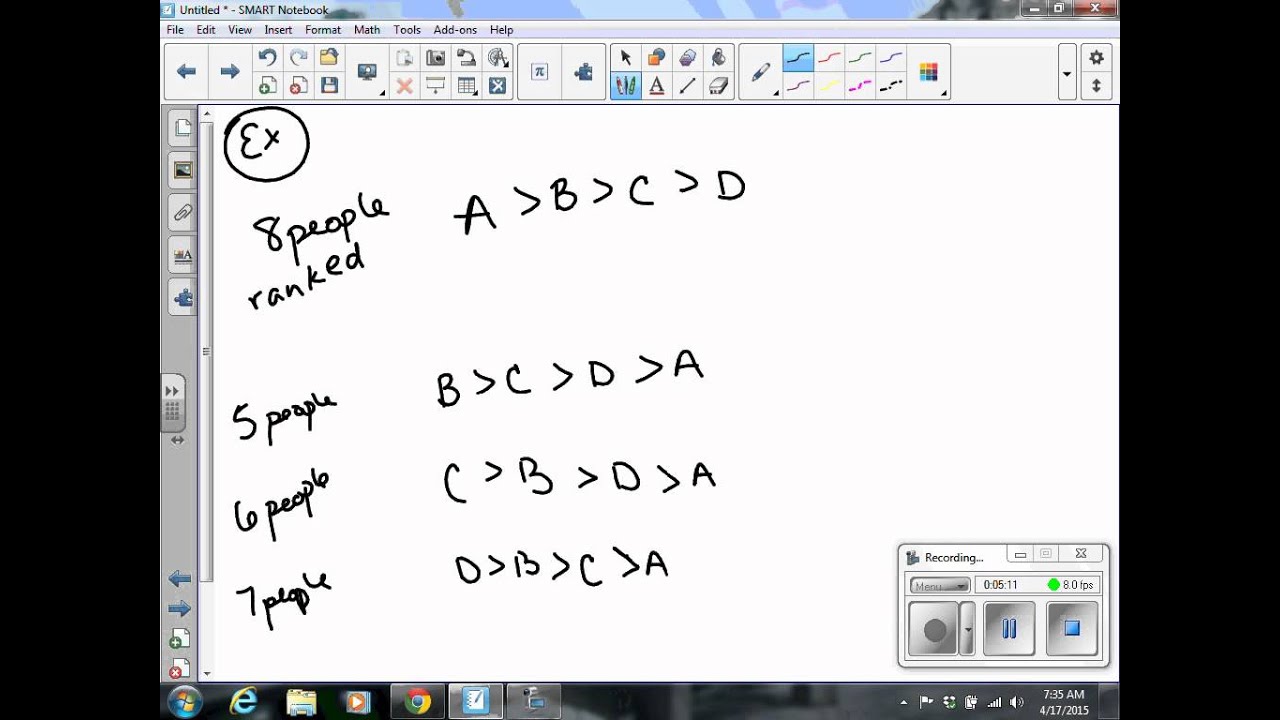 Untitled * - SMART Notebook
File Edit View Insert Format Math Tools Add-ons Help
π
A
Ex
8 people A > B > C > D
ranked
5 people B > C > D > A
6 people C > B > D > A
7 people D > B > C > A
Recording...
Menu 0:05:11 8.0 fps
7:35 AM
4/17/2015